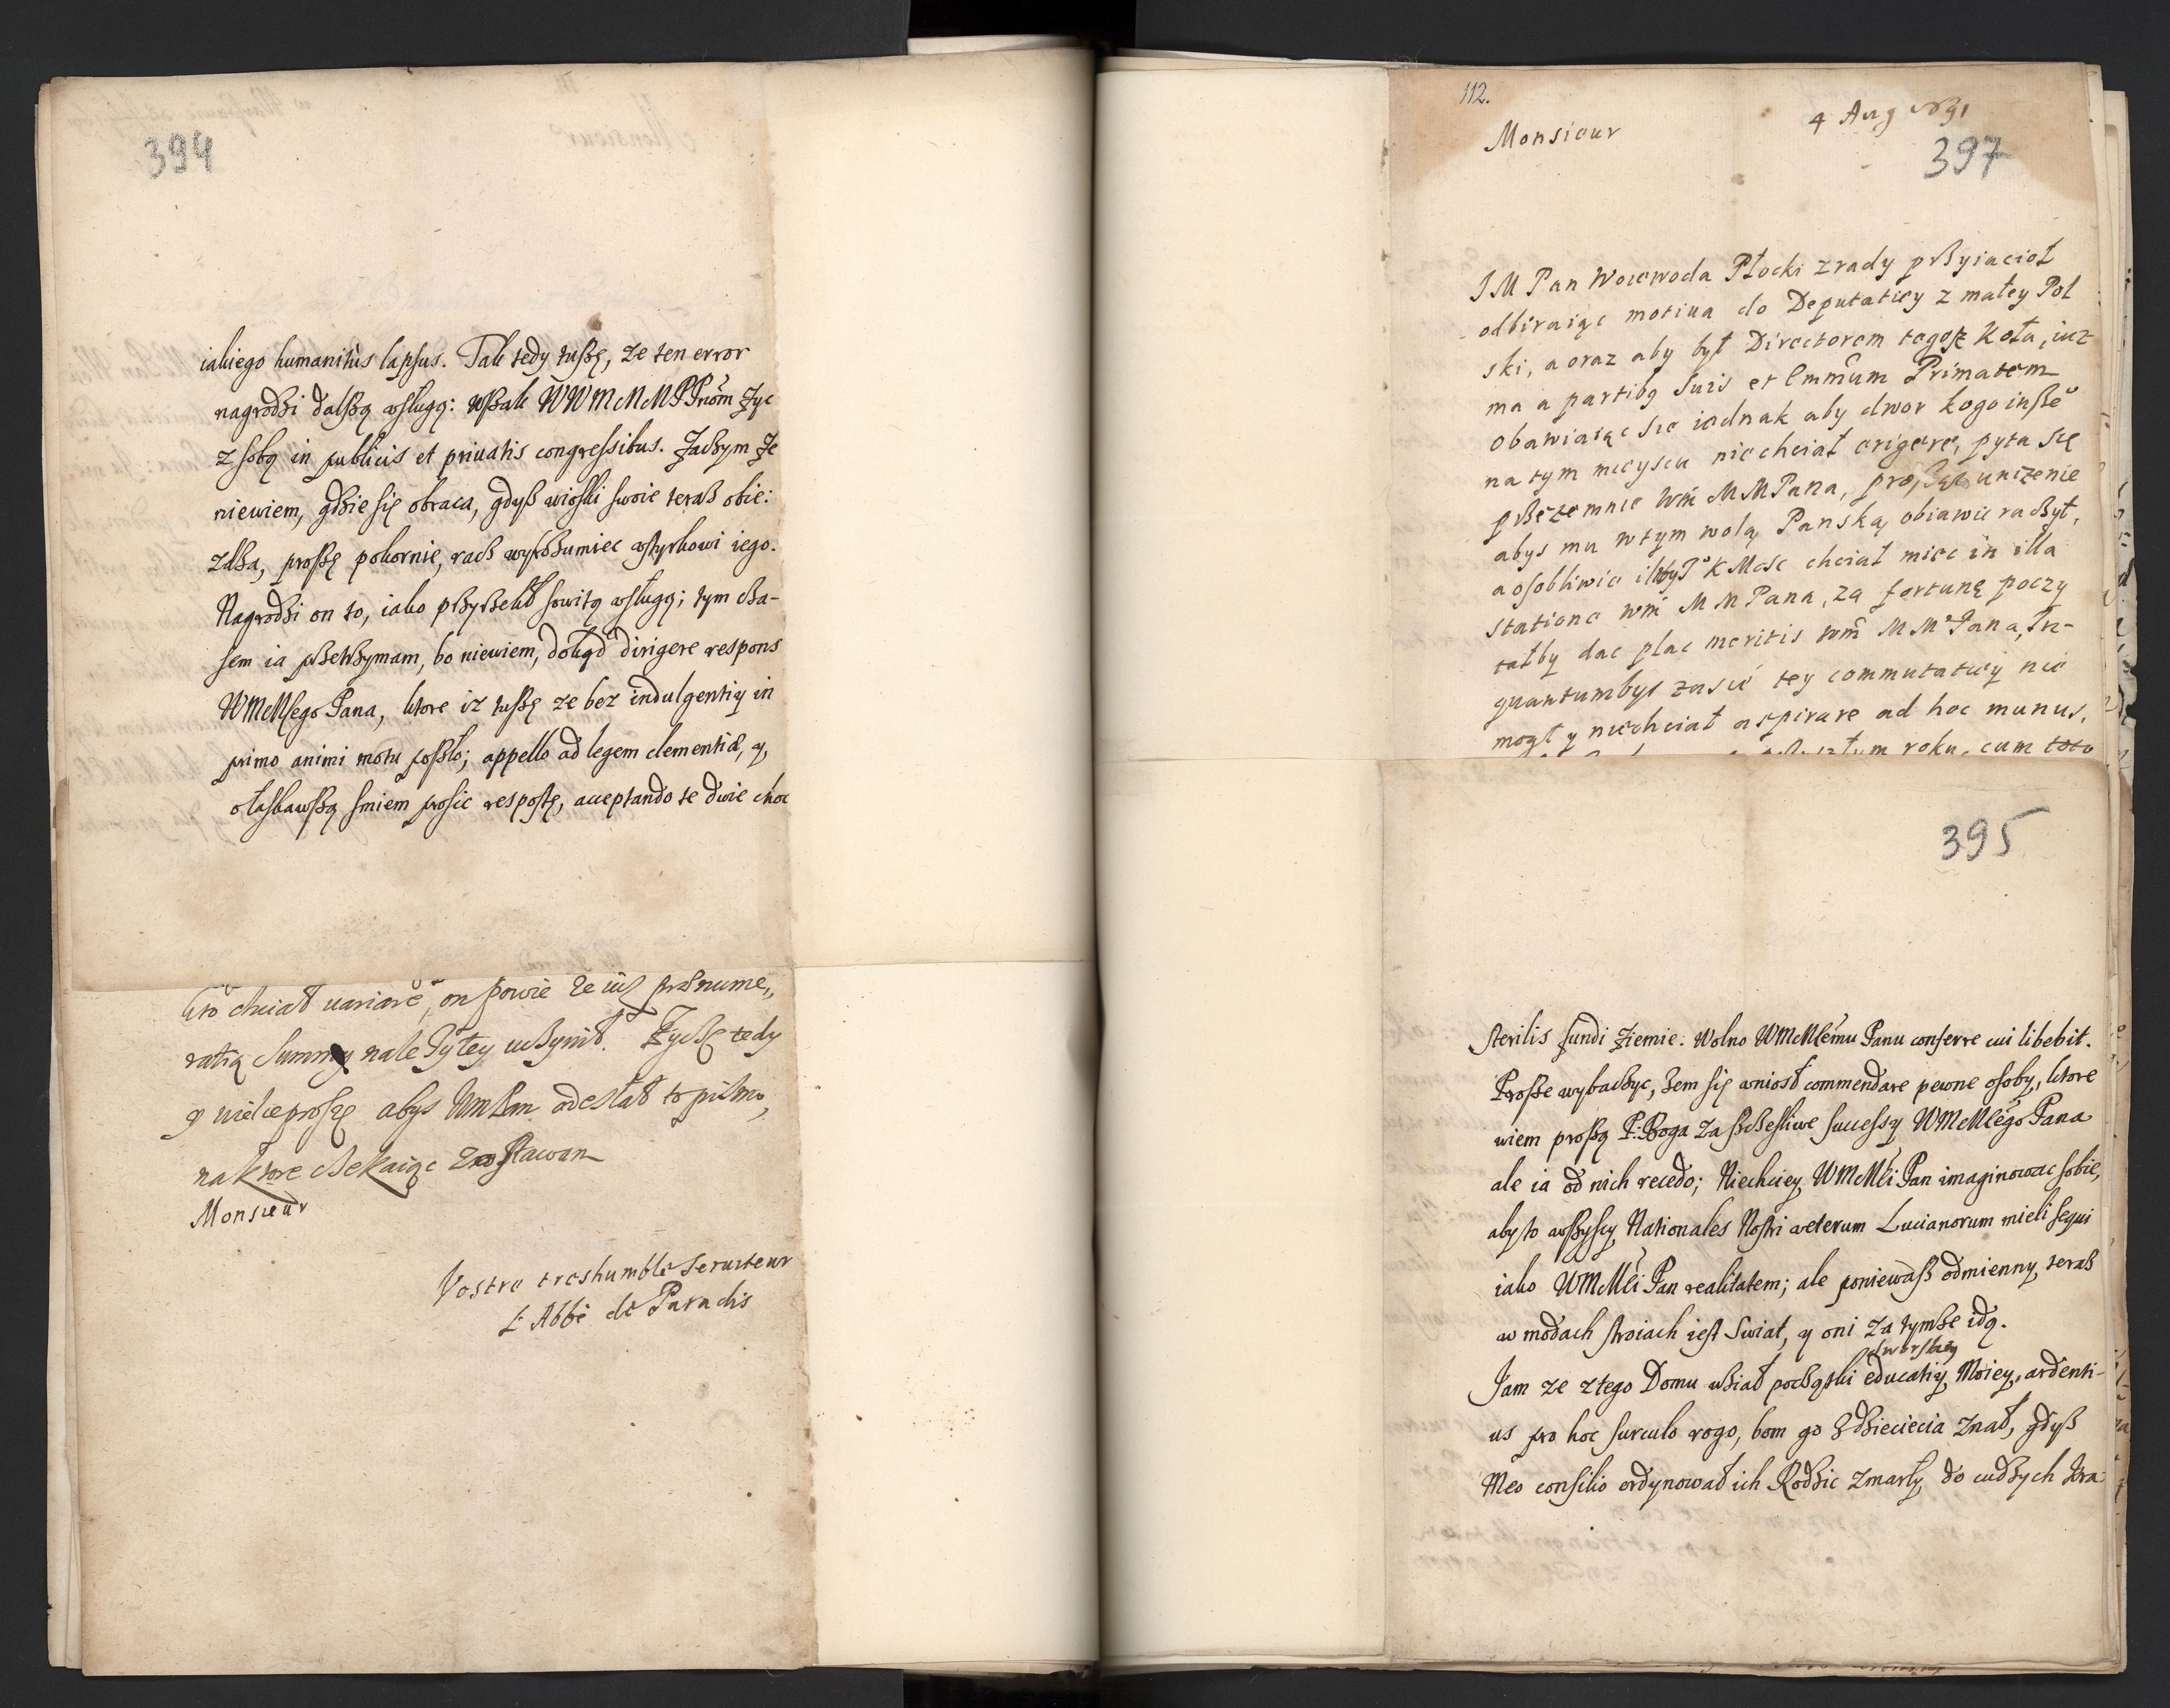 394
iakiego humanitùs lapsus. Tak tedy tuszę, ze ten error
nagrodzi dalszą usługą: wszak WWMMMPPnom zyc
z sobą in publicis et priuatis congressibus. Zaczym ze
niewiem, gdzie się obraca, gdysz wioski swoie terasz obie:
zdza, proszę pokornie, racz wyrozumiec ustyrkowi iego.
Nagrodzi on to, iako przyrzekł sowitą usługą; tym cza-
sem ia przetrzymam, bo niewiem, dokąd dirigere respons
WMMsego Pana, ktore iz tuszę ze bez indulgentiy in
primo animi motu poszło; appello ad legem clementiæ, y
o łaskawszą smiem prosic respostę, acceptando te dwie choc
kto chciał uariare, on powie ze iusz prænume,,
ratią summy nalezytey uczynił. Zyczę tedy
y wielce proszę abys WmPan odesłał to pismo,
na ktore czekaiąc zostawam
Monsieur
Vostre treshumble seruiteur
L'Abbé de Paradis
112.
Monsieur
4 Aug 1691
397
JM Pan Woiewoda Płocki z rady przyiacioł
odbiraiąc motiua do Deputatiey z małey Pol
ski, a oraz aby był Directorem tegosz Koła, iuz
ma a partibq suis et Emmum Primatem
obawiaiąc sie iednak aby dwor kogo insze°
na tym mieyscu niechciał erigere, pyta się
przezemnie Wm MMPana, prosząc unizenie
abys mu w tym wolą Panską obiawic raczył,
a osobliwie iezliby J° K Mosc chciał miec in illa
statione Wm MMPana, za fortunę poczy
tałby dac plac meritis Wm MM Pana, In-
quantumbys zasie tey commutatiey nie
mogł y niechciał aspirare ad hoc munus,
roku, cum toto
395
sterilis fundi ziemie. Wolno WMMMemu Panu conferre cui libebit.
Prosze wybaczyc, zem się wniosł commendare pewne osoby, ktore
wiem proszą P. Boga za szczesliwe successy WMMMego Pana
ale ia od nich recedo; Niechciey WMMMci Pan imaginowac sobie,
aby to wszyscy Nationales Nostri veterum Lucianorum mieli sequi
iako WMMMci Pan realitatem; ale poniewasz odmienny terasz
w modach stroiach iest Swiat, y oni za tymze idą.
dworskiey
Jam ze z tego Domu wział początki educatiy Moiey, ardenti-
us pro hoc surculo rogo, bom go z dzieciecia znał, gdysz
Meo consilio ordynował ich Rodzic zmarły do cudzych kra: